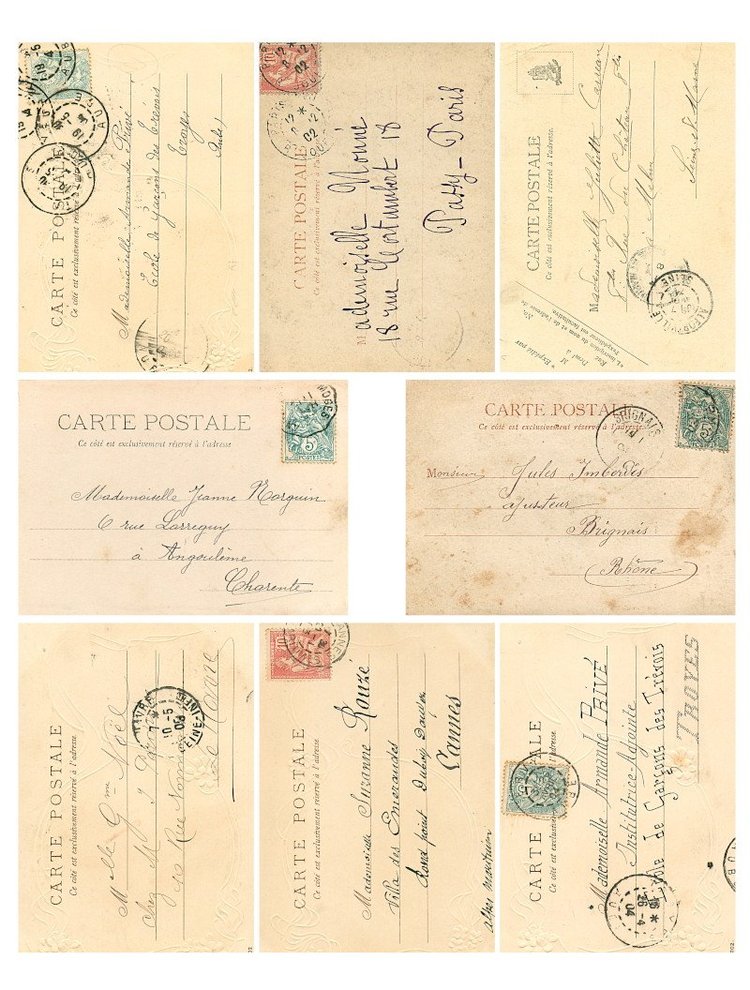 CARTE POSTALE
Ce côté est exclusivement réservé à l'adresse.
Mademoiselle Armande Privé
École de Garçons des Trévois
Troyes
Aube
CARTE POSTALE
Ce côté est exclusivement réservé à l'adresse.
Mademoiselle Nonné
18 rue Mortumbert 18
Passy-Paris
CARTE POSTALE
Ce côté est exclusivement réservé à l'adresse.
Mademoiselle Juliette
Rue du Château
Melun
Seine et Marne
Expédié par
CARTE POSTALE
Ce côté est exclusivement réservé à l'adresse
5
POSTES
Mademoiselle Jeanne Norguin
6 rue Larreguy
à Angoulême
Charente
CARTE POSTALE
Ce côté est exclusivement réservé à l'adresse.
BRIGNAIS
Monsieur Jules Imbordès
ajusteur
Brignais
Rhône
CARTE POSTALE
Ce côté est exclusivement réservé à l'adresse.
Melle Gme Noël
chez M
Rue
Le Havre
10-5
03
CARTE POSTALE
Ce côté est exclusivement réservé à l'adresse.
10
Mademoiselle Suzanne Rouzé
Villa des Emeraudes
Rond point
Cannes
alpes maritimes
CARTE POSTALE
Ce côté est exclusivement réservé à l'adresse.
Mademoiselle Armande PRIVÉ
Institutrice-Adjointe
École de Garçons des Trévois
à
TROYES
26-4
04